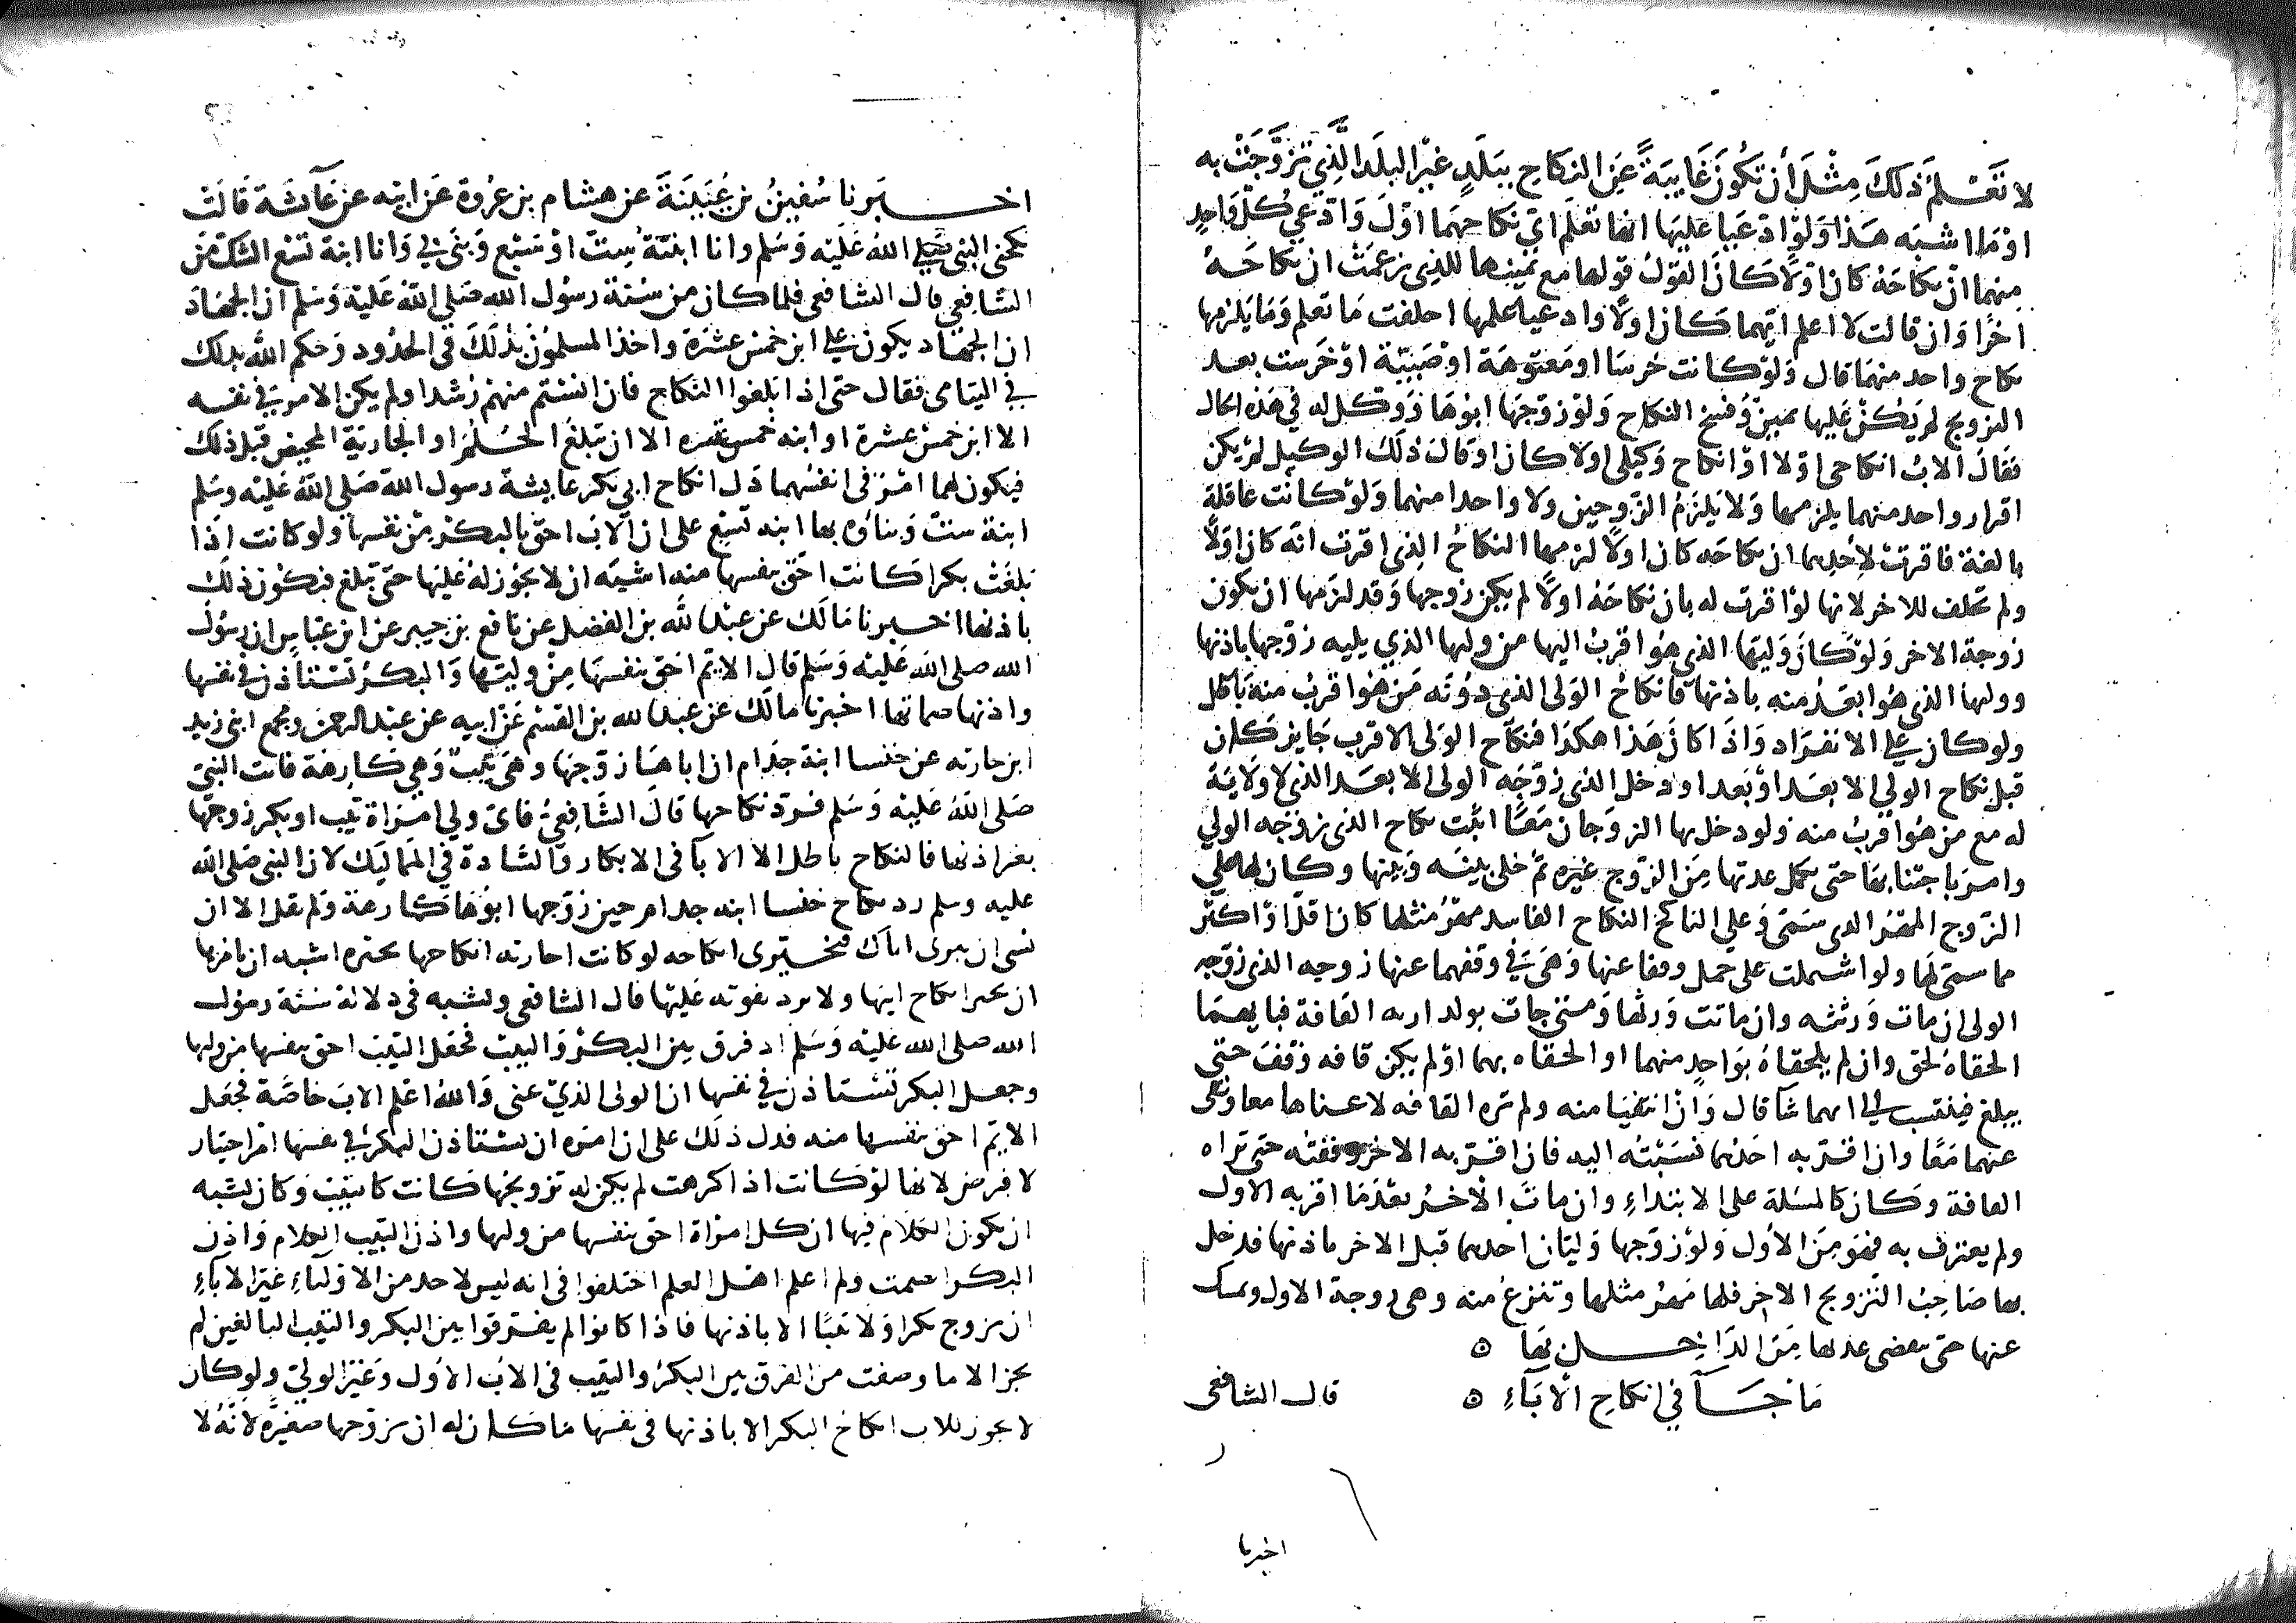 لا تَعْلمَ ذلكَ مِثْلَ أن تكُونَ غَايبَةً عَن النكاحِ ببَلَدٍ غيْر البلَد الَّذِي تَزوَّجَتْ به
اوْ مَا اشبَه هَذا وَلَوْ ادّعَيا عليهَا انها تعْلَم ايّ نكاحهمَا اوّلَ وَادّعى كُل وَاحدٍ
منهما انّ نكاحَهُ كان اوّلا كَانَ القَوْل قولها مع يمينها للذي زعَمَتْ ان نكاحَهُ
اخرًا وَان قالت لا اعلم ايّهما كَان اولًا وادعيا علمها احلفت مَا تعلم وَمَا يَلزمها
نكاح واحد منهمَا قال وَلوْ كانت خُرسَا او مَعتوهَة اوْ صَبيّة اوْ خَرست بعد
التزويج لم يَكُنْ عَليها يمينٌ وَفسخ النكاح وَلوْ زوّجَها ابُوهَا وَوَكّل له في هَذه الحال
فقالَ الابُ انكاحى اوّلا اوْ انكاح وَكيلى اولا كان او قالَ ذلكَ الوكيل لمْ يكن
اقرار واحد منهما يلزمها وَلا يَلزمُ الزّوجين ولا واحدا منهما وَلوْ كانَت عاقلة
بالغة فاقرتْ لأحدِهما ان نكاحَه كان اولًا لزمها النكاحُ الذى اقرت انّه كان اوَلًا
ولم تحلف للاخر لانها لوْ اقرت له بان نكاحَهُ اولًا لم يكن زوجها وَقد لزمها ان يكون
زوجة الاخر وَلوْ كانَ وَليّها الذى هُوَ اقربُ اليها من وليها الذي يليه زوّجها باذنها
ووليها الذى هُوَ ابعَدُ منه باذنها فانكاحُ الوَلى الذى دُونَه مَنْ هُوَ اقربُ منهُ بَاطل
ولو كان على الانفرَاد وَاذَا كانَ هَذا هكذا فنكاح الوَلى الاقرب جَايز كَان
قبل نكاح الولي الابعَد اوْ بَعد او دخل الذى زوّجَه الولى الابعَد الذي لا ولايَة
له مع من هُوَ اقربُ منه ولو دخل بها الزوجان مَعًا اثبت نكاح الذى زوجه الولي
وامرَ باجتنابها حتى تكمل عدتها مِنَ الزّوج غيره ثمّ خلى بينَه وَبينها وكان لها على
الزّوج المَهْرُ الذى سَمّى وَعلي الناكح النكاح الفاسد مَهْرُ مثلها كان اقلّ اوْ اكثر
مما سمّى لهَا ولو اشتملت على حمل وقفا عنها وَهيَ في وقفهما عنها زوجه الذى زوّجه
الولى ان مات وَرثته وان ماتت وَرثها وَمتى جات بولد اريه القافة فبايهما
الحقاهُ لحق وان لم يلحقاهُ بوَاحدٍ منهما او الحقاه بهما اوْ لم يكن قافه وُقفَ حتى
يبلغ فينتسب الى ايهما شآ قال وَانْ انتفَيا منه ولم تره القافه لاعناها معا ونفى
عنهما مَعًا وان اقرّ به احَدُهما نسَبْتُه اليه فان اقرّ به الاخر وقفته حتى تراه
القافة وكَان كالمسَلة على الابتداءِ وان ماتَ الاخرُ بعْدَمَا اقر به الاول
ولم يعترف به فهوَ مِنَ الأول وَلوْ زوّجها وَليّان احدهما قبل الاخر باذنها فدخل
بها صَاحِبُ التّزويج الاخر فلها مَهرُ مثلها وتنزعُ منه وهى زوجة الاول ويمسك
عنها حتى تنقضى عدتها مِنَ الدَّاخِل بهَا ه
مَا جَاَ في انكاحِ الأبَآءِ ه قال الشافعى
اخبرنا
اخبرنا سُفينُ بن عُيَيْنَةَ عن هشام بن عُرْوة عَن ابيه عن عَآئشَة قَالَت
نكحنى النبى صَلى الله عَليْه وَسَلم وانا ابنَة سِتّ اوْ سَبْع وَبنَى بي وَانا ابنة تسْع الشك من
الشافعي قال الشافعى فلما كان من سُنّة رسُول الله صَلى اللهُ عَليْه وَسَلم ان الجهَادَ
ان الجهَاد يكون على ابن خمسَ عشرَة واخذ المسلمُونَ بذلكَ في الحدُود وَحكم الله بذلك
في اليتامى فقال حتى اذا بلغوا النكاح فان انسْتم منهم رُشدا ولم يكن الامر في نفسه
الا ابن خمسَ عشرة او ابنه خمس عشره الا ان يبلغ الحُلُمَ او الجَاريَة المحيض قبل ذلك
فيكون لهما امْرٌ فى انفسُهما دَل انكاح ابي بَكر عايشة رسول الله صَلى اللهُ عَليْه وسَلم
ابنة ستّ وَبناؤه بها ابنه تسْع على ان الابَ احقّ بالبكْر مِنْ نفسها ولو كانت اذا
بَلغَتْ بكرا كَانت احقّ بنفسها منه اشبَه ان لا يجُوز لهُ عَليها حتىّ تبلغ فيكون ذلك
باذنها اخبرنا مَالكَ عن عبْد الله بن الفضل عن نافع بن جبير عن ابن عباس ان رسُول
الله صلى الله عَليْه وَسَلم قال الايّم احَق بنفسهَا مِنْ وليّها وَالبكرُ تستأذن في نفسها
واذنها صماتها اخبرنا مالكَ عن عبد الله بن القسم عَنْ ابيه عن عبْد الرحمن ومجمع ابنى زيد
ابن حارثه عن خنسا ابنة جذام ان اباهَا زوّجَها وهىَ ثَيّبٌ وَهى كارِهَة فاتت النبيّ
صَلى اللهُ عَليْه وَسَلم فرَدّ نكاحها قالَ الشَّافِعىُ فاىّ ولى امْرَاة ثيب او بكر زوجَها
بغير اذنها فالنكاح باطل الا الابآ فى الابكار والسّادة في المَمَاليَك لان النبى صَلى الله
عليه وسلم رد نكاح خنسا ابنه جذام حين زوّجها ابُوهَا كارهة وَلم يقل الا ان
تشى ان تبرى اباك فتختبرى انكاحه لو كانت اجازته انكاحها يجيزه اشبه ان يامرها
ان تجيز انكاح ابيها ولا يرد بقوته عَليْها قال الشافعى ويشبه في دلالة سُنّة رسُول
الله صلى الله عَليْه وَسَلم اذ فرق بين البكْر وَالثيب فجعَل الثيّبَ احق بنفسها من وليها
وجعل البكر تسْتاذن في نفسها ان الولى الذيّ عنى وَاللهُ اعْلم الابَ خاصّة فجعَل
الايّم احق بنفسها منه فدل ذلك على ان امره ان تستاذن البكرُ في نفسها امْر اختيار
لا فرض لانها لوْ كانت اذا كرهت لم يكن له تزويجُها كانت كالثيّب وَكان يشبه
ان يكون الكلام فيها ان كل امرَاة احق بنفسها من وليها واذن الثيب الكلام وَاذن
البكر الصمت ولم اعلم اهل العلم اختلفوا فى انه ليس لاحد من الاوْليَاءِ غيْر الابآءِ
ان يزوج بكرا وَلا ثيبًا الا باذنها فاذا كانوا لم يفترقوا بين البكر والثيب البالغين لم
يجز الا ما وصفت من الفرق بين البكر والثيب فى الاب الاول وَغيْر الوليّ ولو كان
لا يجوز للاب انكاحُ البكر الا باذنها فى نفسها مَا كان له ان يزوّجها صَغيْرَة لأنَّهُ لا